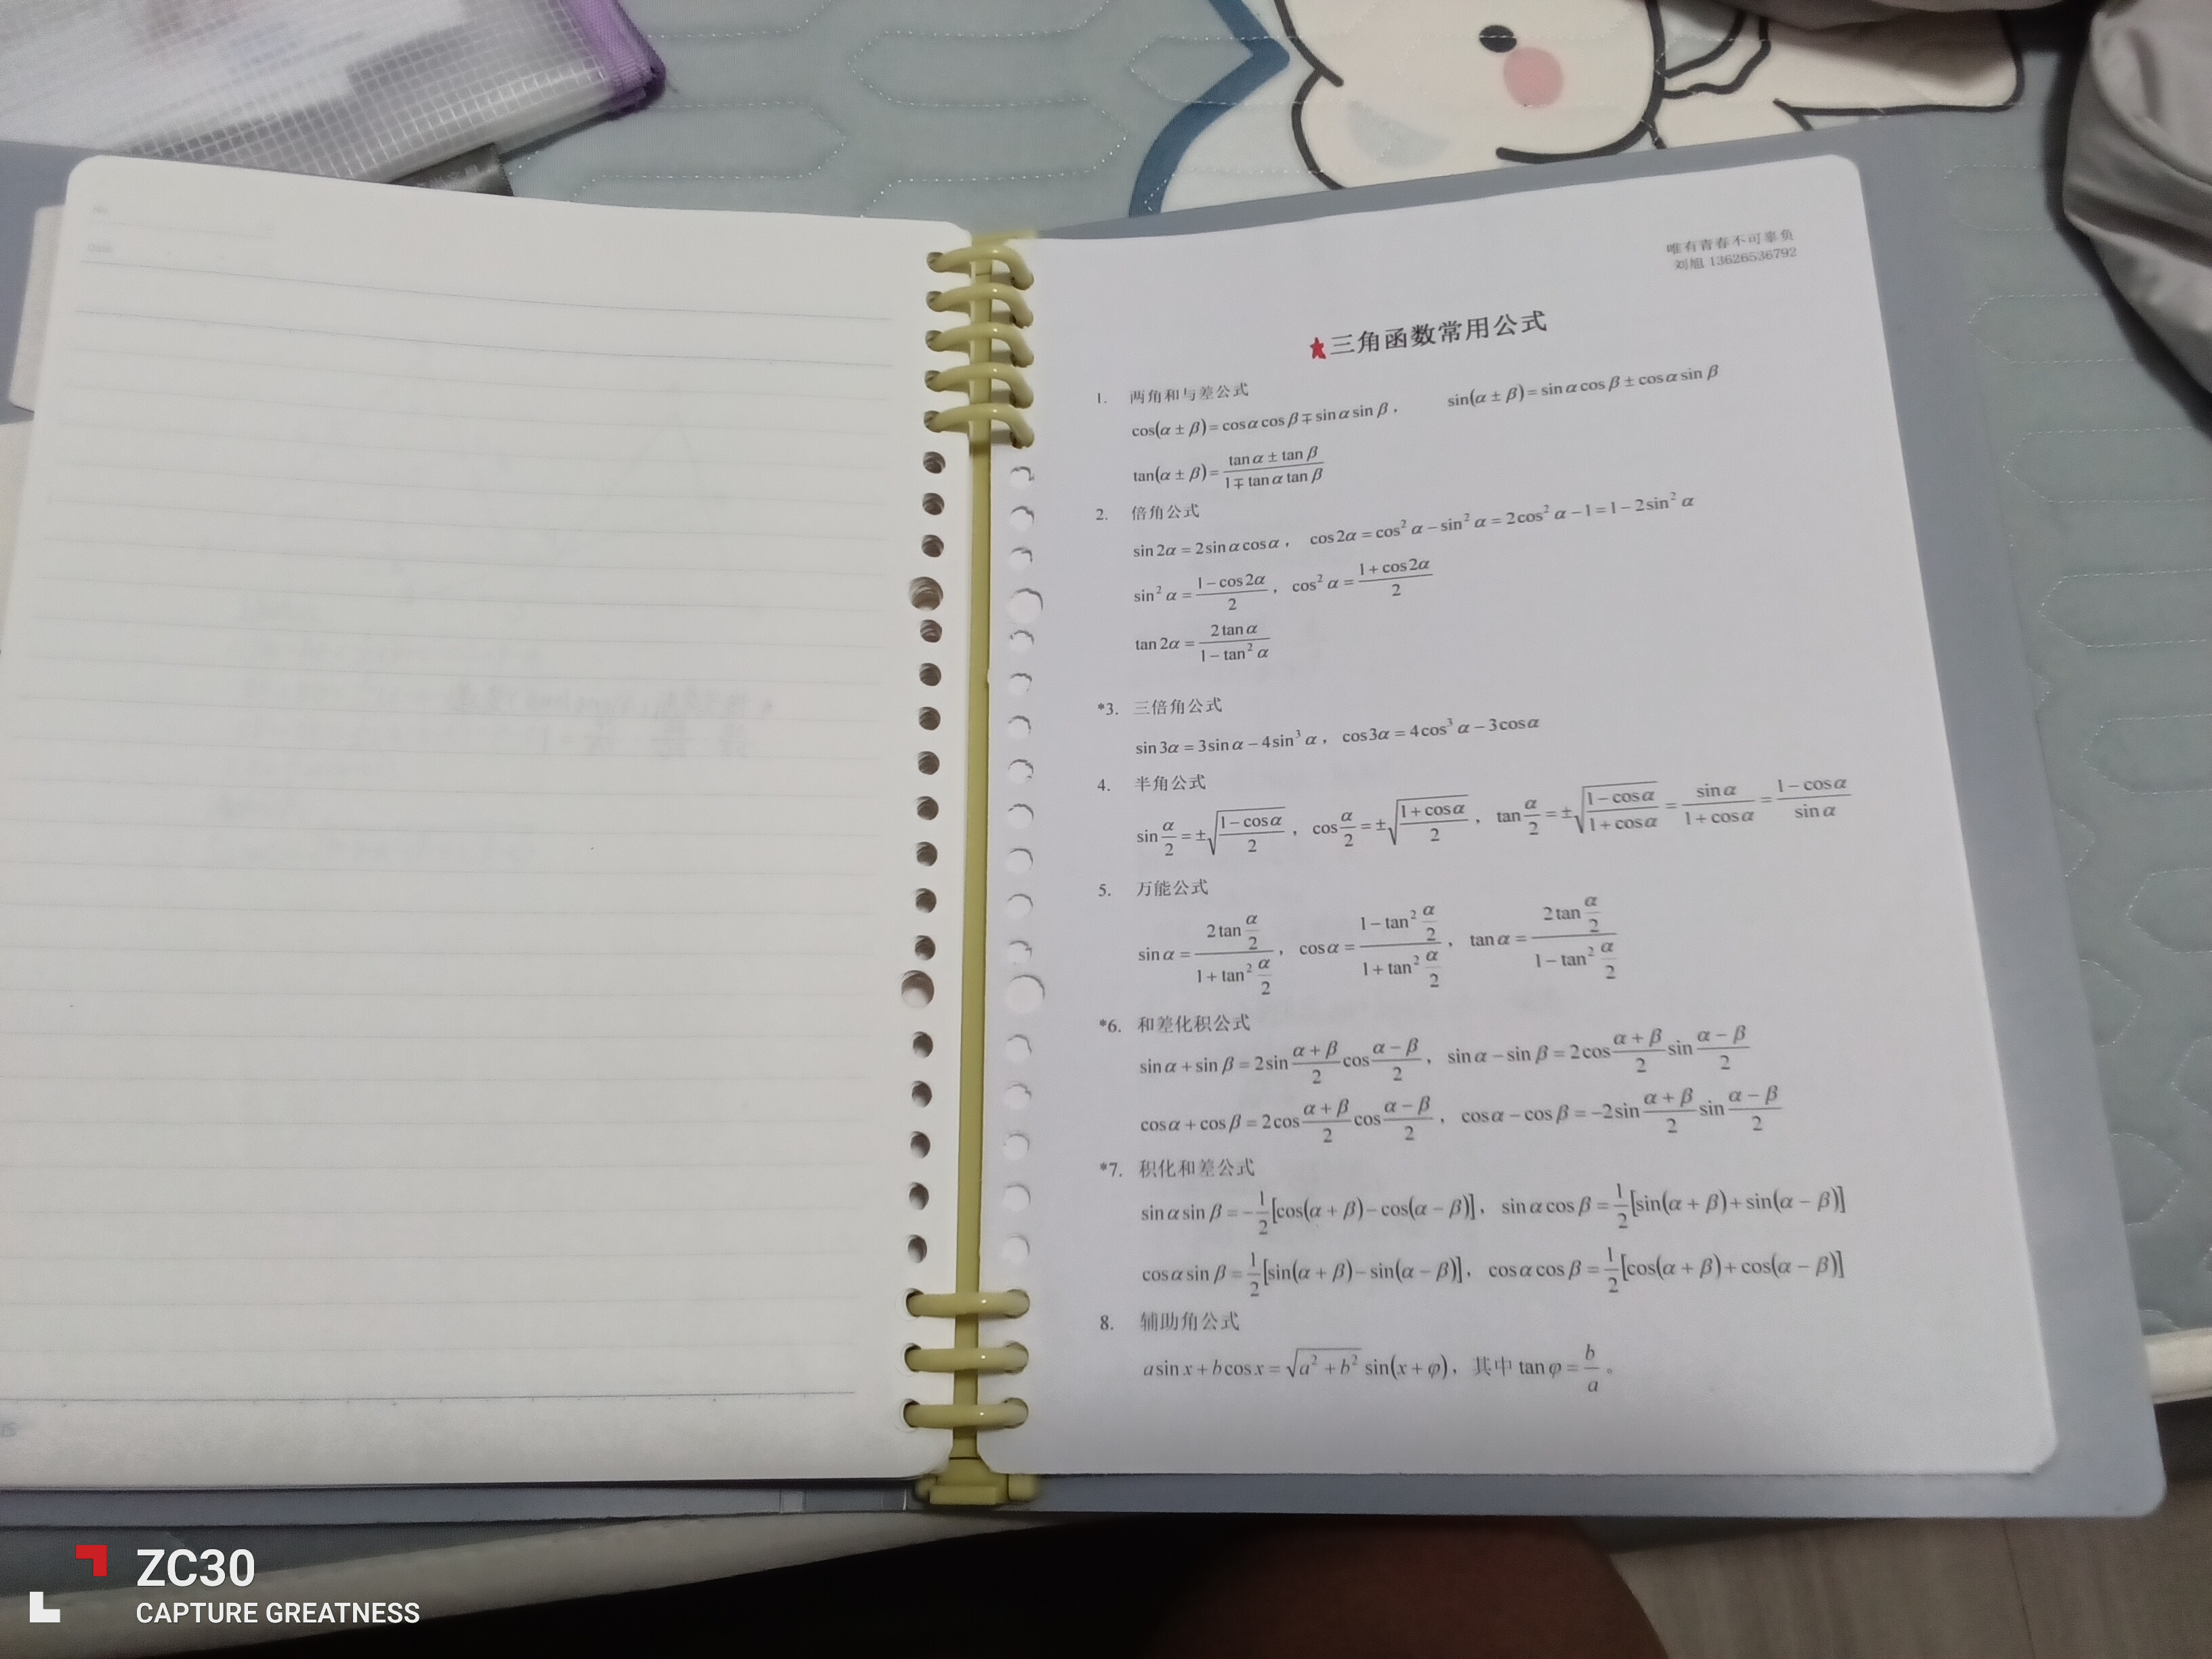 唯有青春不可辜负
刘旭 13626536792
★三角函数常用公式
1. 两角和与差公式
cos(α ± β) = cos α cos β ∓ sin α sin β , sin(α ± β) = sin α cos β ± cos α sin β
tan(α ± β) = \frac{tan α ± tan β}{1 ∓ tan α tan β}
2. 倍角公式
sin 2α = 2 sin α cos α , cos 2α = cos² α − sin² α = 2 cos² α − 1 = 1 − 2 sin² α
sin² α = \frac{1 − cos 2α}{2} , cos² α = \frac{1 + cos 2α}{2}
tan 2α = \frac{2 tan α}{1 − tan² α}
*3. 三倍角公式
sin 3α = 3 sin α − 4 sin³ α , cos 3α = 4 cos³ α − 3 cos α
4. 半角公式
sin \frac{α}{2} = ±\sqrt{\frac{1 − cos α}{2}} , cos \frac{α}{2} = ±\sqrt{\frac{1 + cos α}{2}} , tan \frac{α}{2} = ±\sqrt{\frac{1 − cos α}{1 + cos α}} = \frac{sin α}{1 + cos α} = \frac{1 − cos α}{sin α}
5. 万能公式
sin α = \frac{2 tan \frac{α}{2}}{1 + tan² \frac{α}{2}} , cos α = \frac{1 − tan² \frac{α}{2}}{1 + tan² \frac{α}{2}} , tan α = \frac{2 tan \frac{α}{2}}{1 − tan² \frac{α}{2}}
*6. 和差化积公式
sin α + sin β = 2 sin \frac{α + β}{2} cos \frac{α − β}{2} , sin α − sin β = 2 cos \frac{α + β}{2} sin \frac{α − β}{2}
cos α + cos β = 2 cos \frac{α + β}{2} cos \frac{α − β}{2} , cos α − cos β = −2 sin \frac{α + β}{2} sin \frac{α − β}{2}
*7. 积化和差公式
sin α sin β = −\frac{1}{2}[cos(α + β) − cos(α − β)] , sin α cos β = \frac{1}{2}[sin(α + β) + sin(α − β)]
cos α sin β = \frac{1}{2}[sin(α + β) − sin(α − β)] , cos α cos β = \frac{1}{2}[cos(α + β) + cos(α − β)]
8. 辅助角公式
a sin x + b cos x = \sqrt{a² + b²} sin(x + φ) , 其中 tan φ = \frac{b}{a} 。
ZC30
CAPTURE GREATNESS